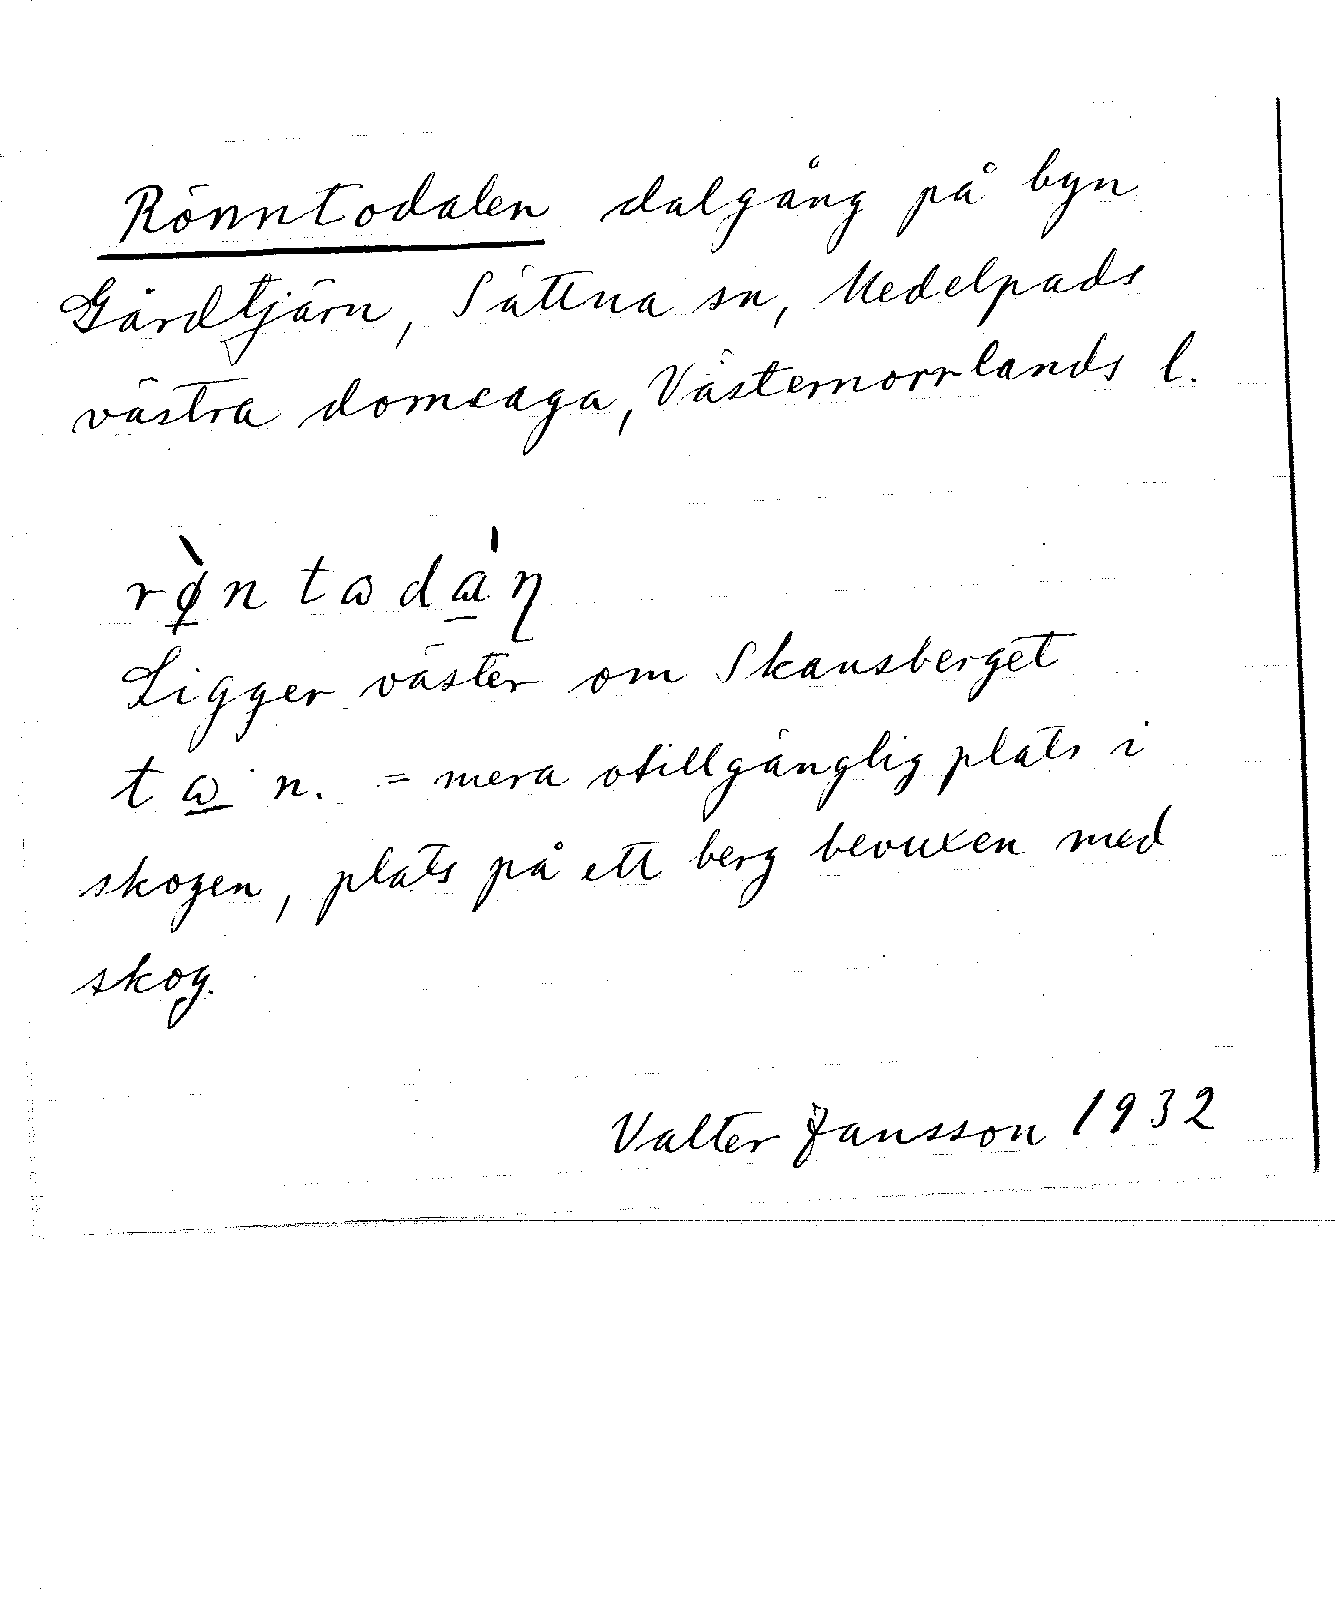 Rönntodalen dalgång på byn
Gårdtjärn, Sättna sn, Medelpads
västra domsaga, Västernorrlands l.
rø̀ntɷdɑ̀ɳ
Ligger väster om Skansberget
tɷ̱ n. = mera otillgänglig plats i
skogen, plats på ett berg bevuxen med
skog.
Valter Jansson 1932